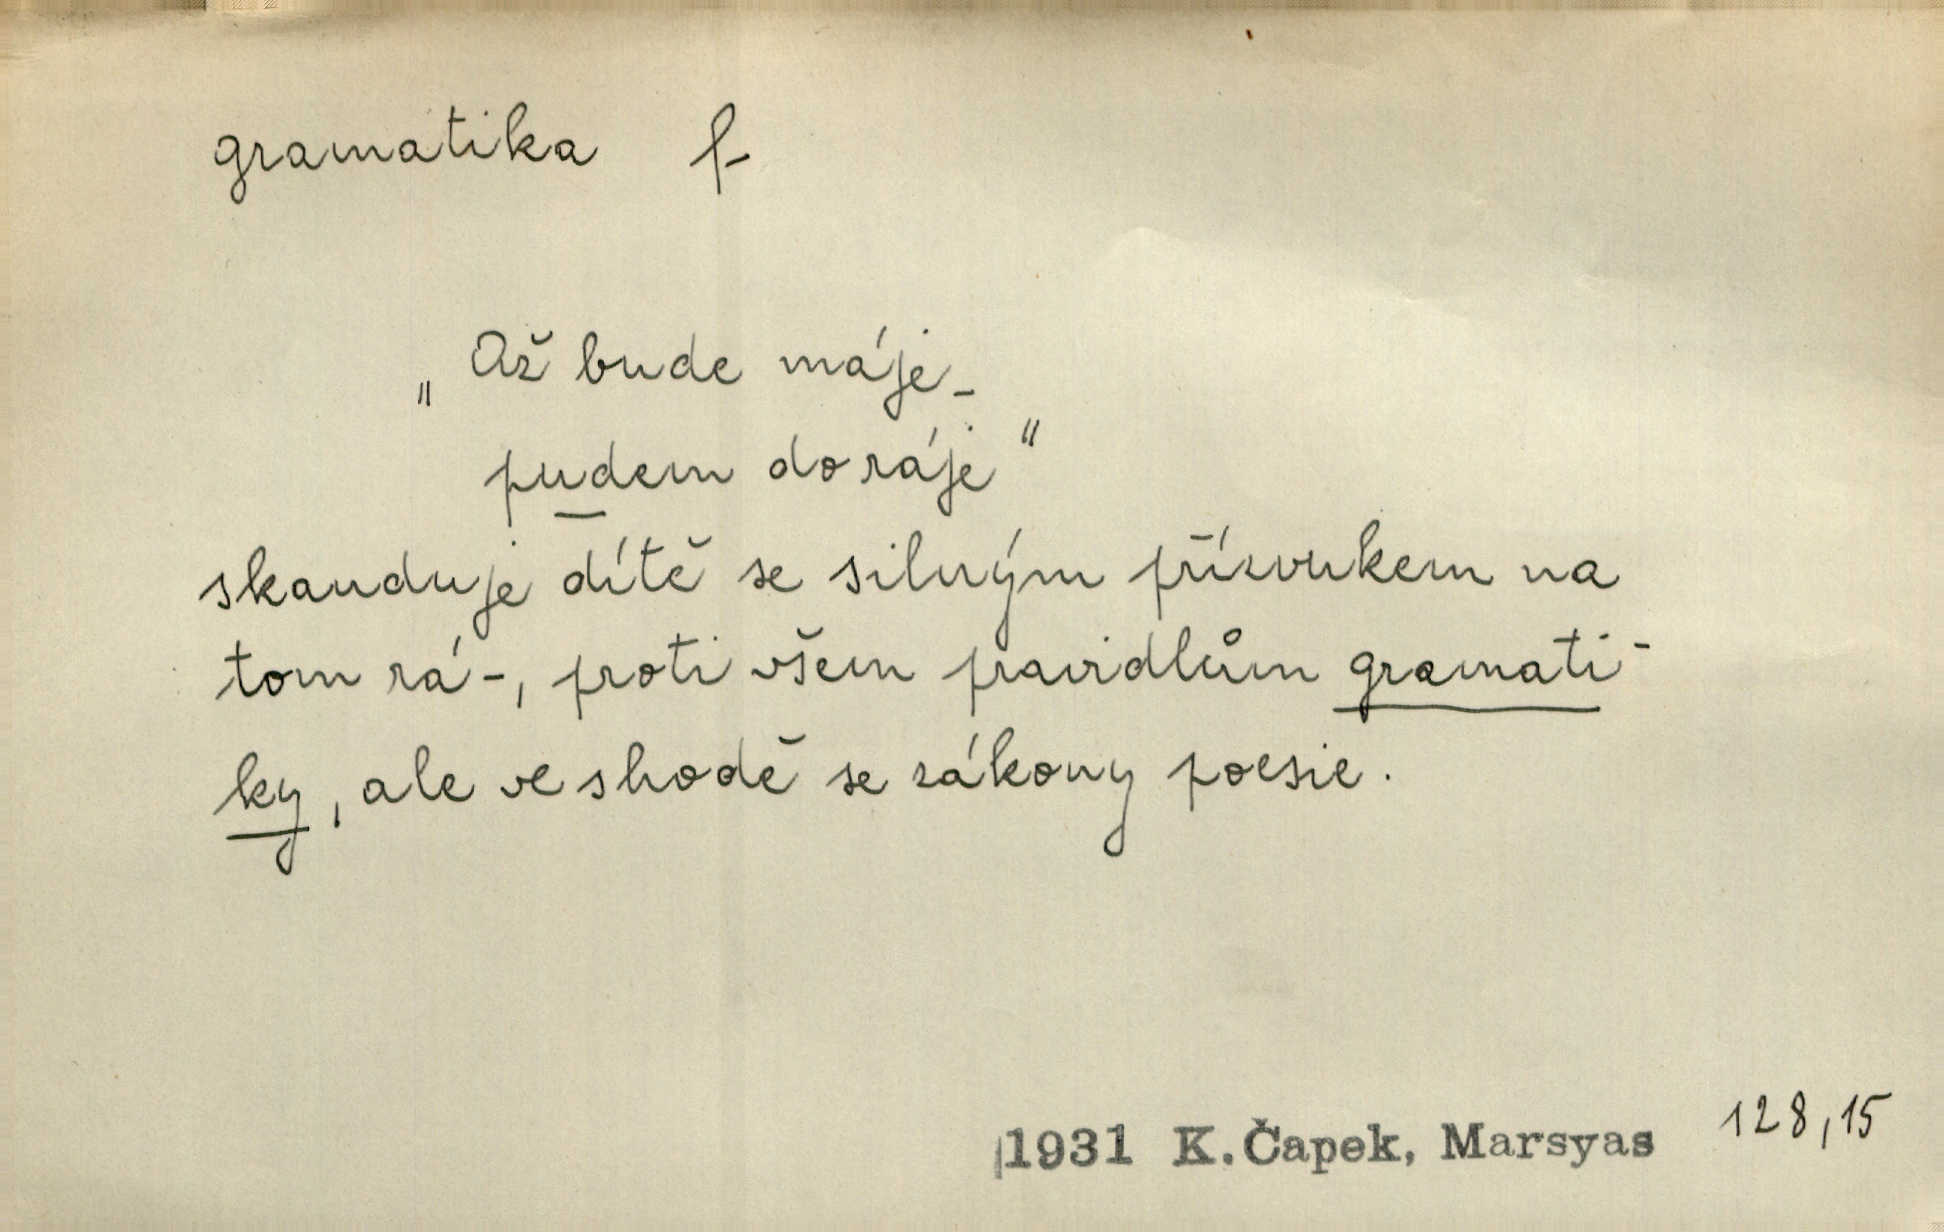 gramatika f-
„Až bude máje_
pudem doráje“
skanduje dítě se silným přízvukem na
tom rá-, proti všem pravidlům gramati-
ky, ale ve shodě se zákony poesie.
1931 K. Čapek, Marsyas 128,15